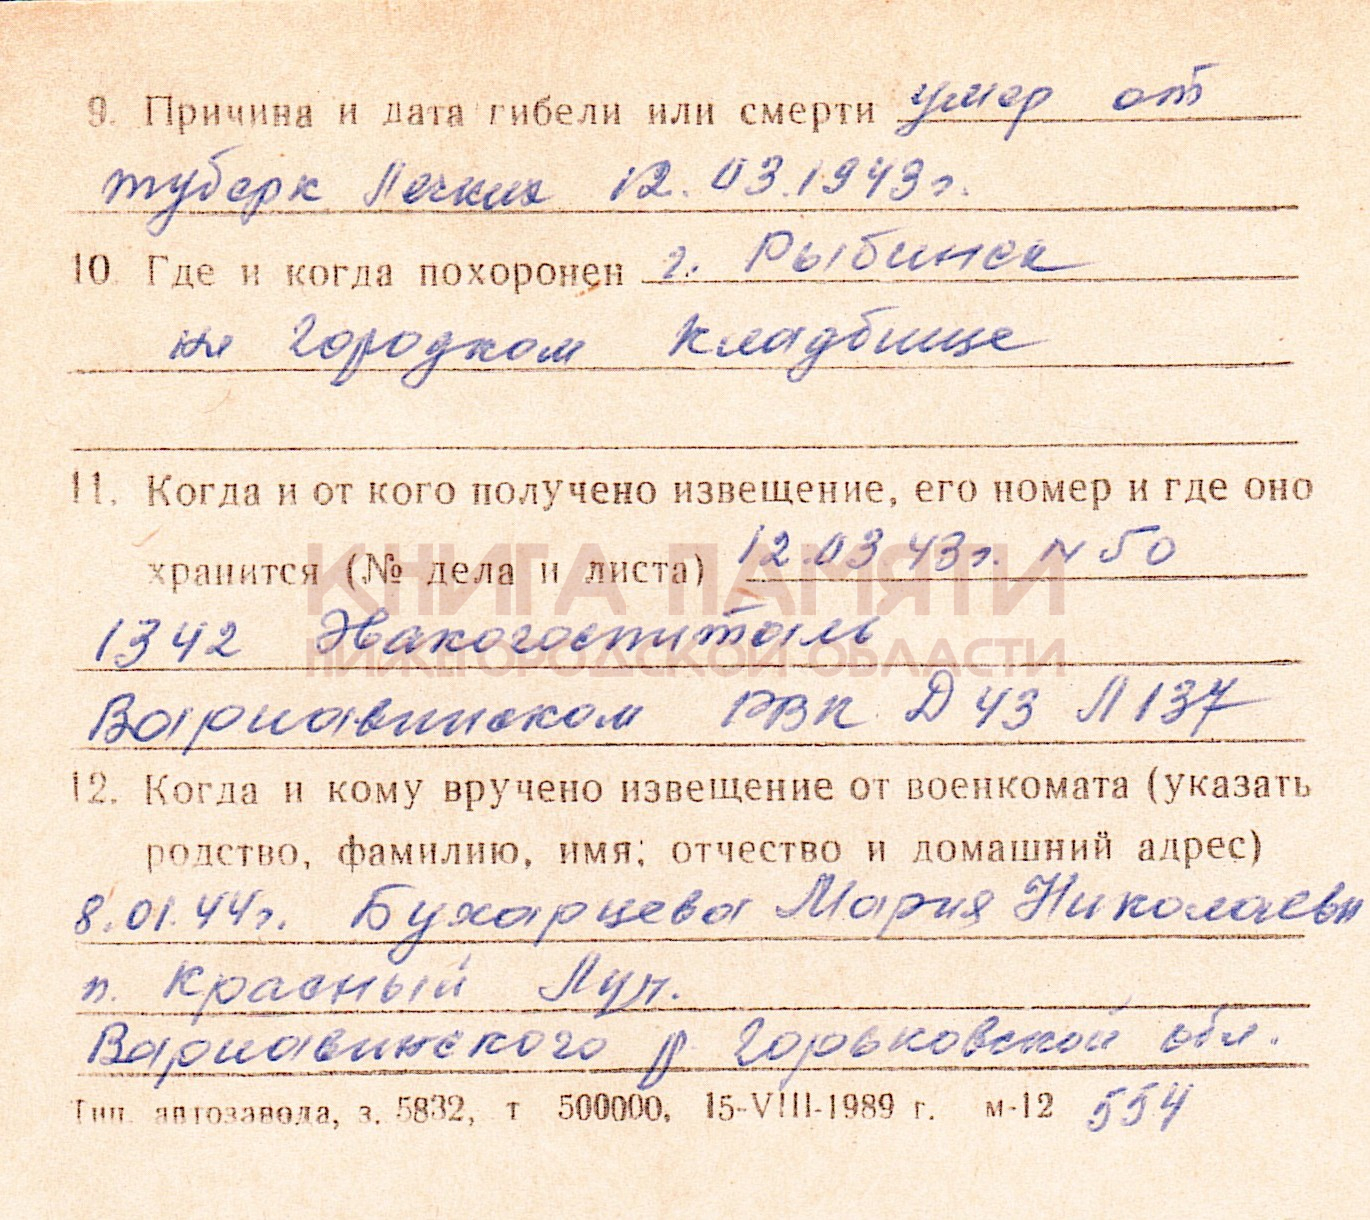 9. Причина и дата гибели или смерти умер от
туберк Легких 12.03.1943г.
10. Где и когда похоронен г. Рыбинск
на Городком кладбище
11. Когда и от кого получено извещение, его номер и где оно
хранится (№ дела и листа) 12.03 43г. N 50
КНИГА ПАМЯТИ
1342 Эвакогоспиталь
НИЖЕГОРОДСКОЙ ОБЛАСТИ
Варнавинском РВК Д 43 Л 137
12. Когда и кому вручено извещение от военкомата (указать
родство, фамилию, имя, отчество и домашний адрес)
8.01.44г. Бухарцева Мария Николаевн
п. Красный Луч.
Варнавинского р Горьковской обл.
Тип. автозавода, з. 5832, т 500000, 15-VIII-1989 г. м-12 554